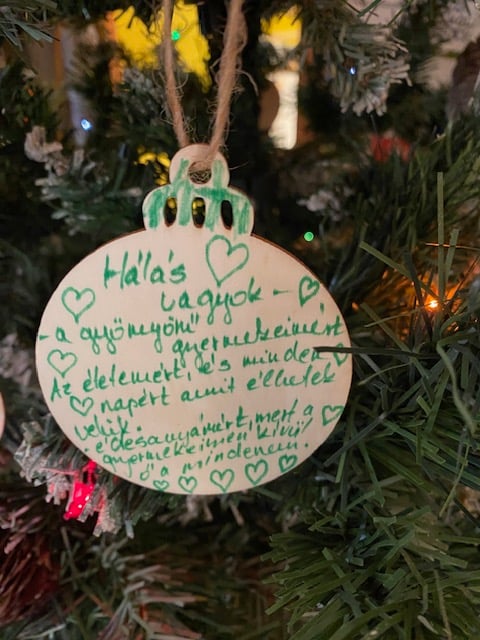 Hálás
vagyok -
- a gyönyörű
gyermekeimért
Az életemért, és minden
napért amit élhetek
velük.
édesanyámért, mert a
gyermekeimen kívül
ő a mindenem.